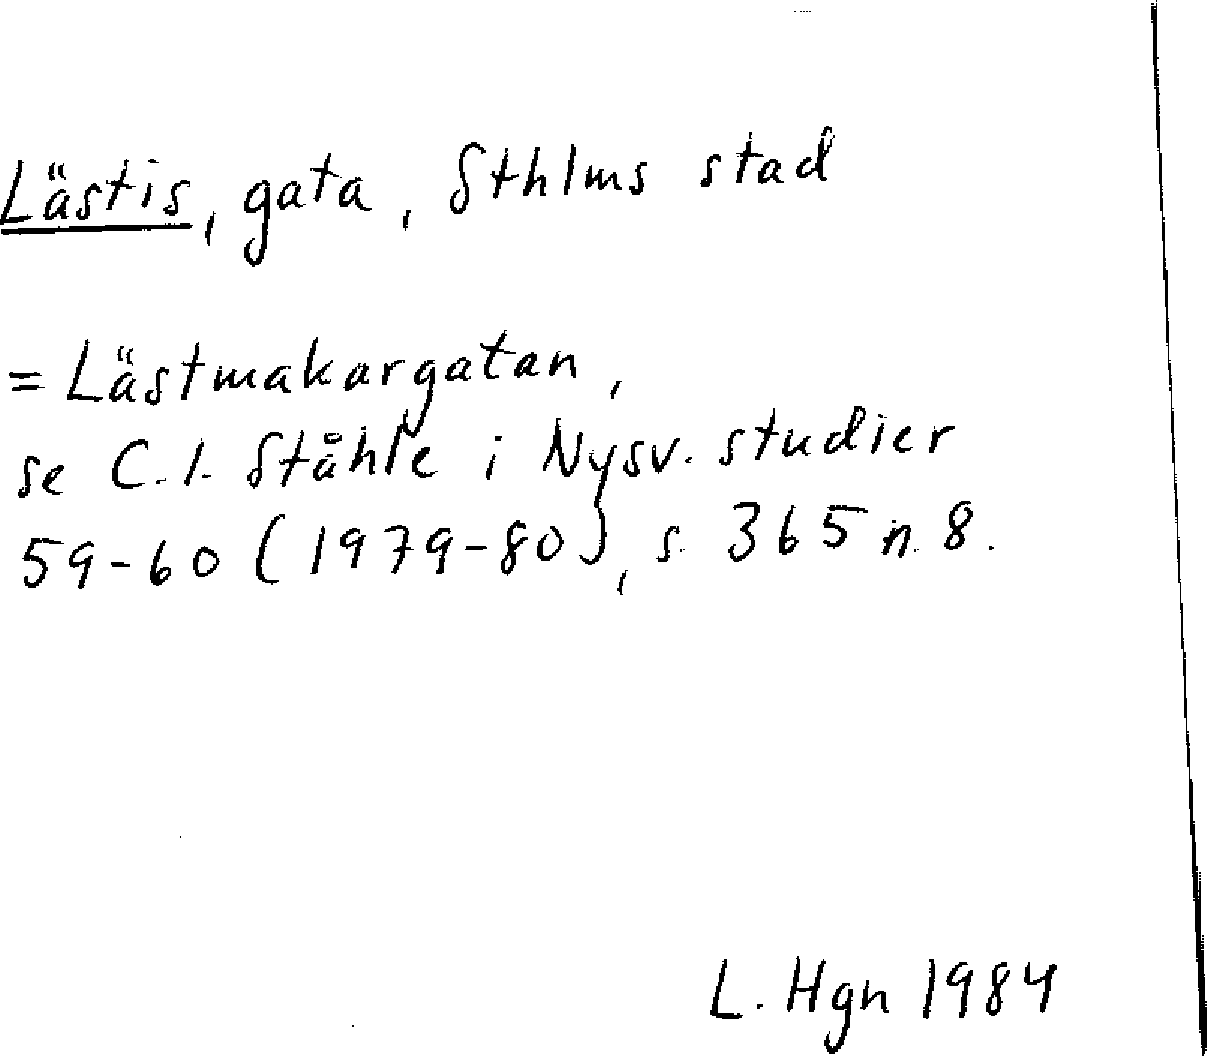 Lästis, gata, Sthlms stad
= Lästmakargatan,
se C. I. Ståhle i Nysv. studier
59-60 (1979-80), s. 365 n. 8.
L. Hgn 1984